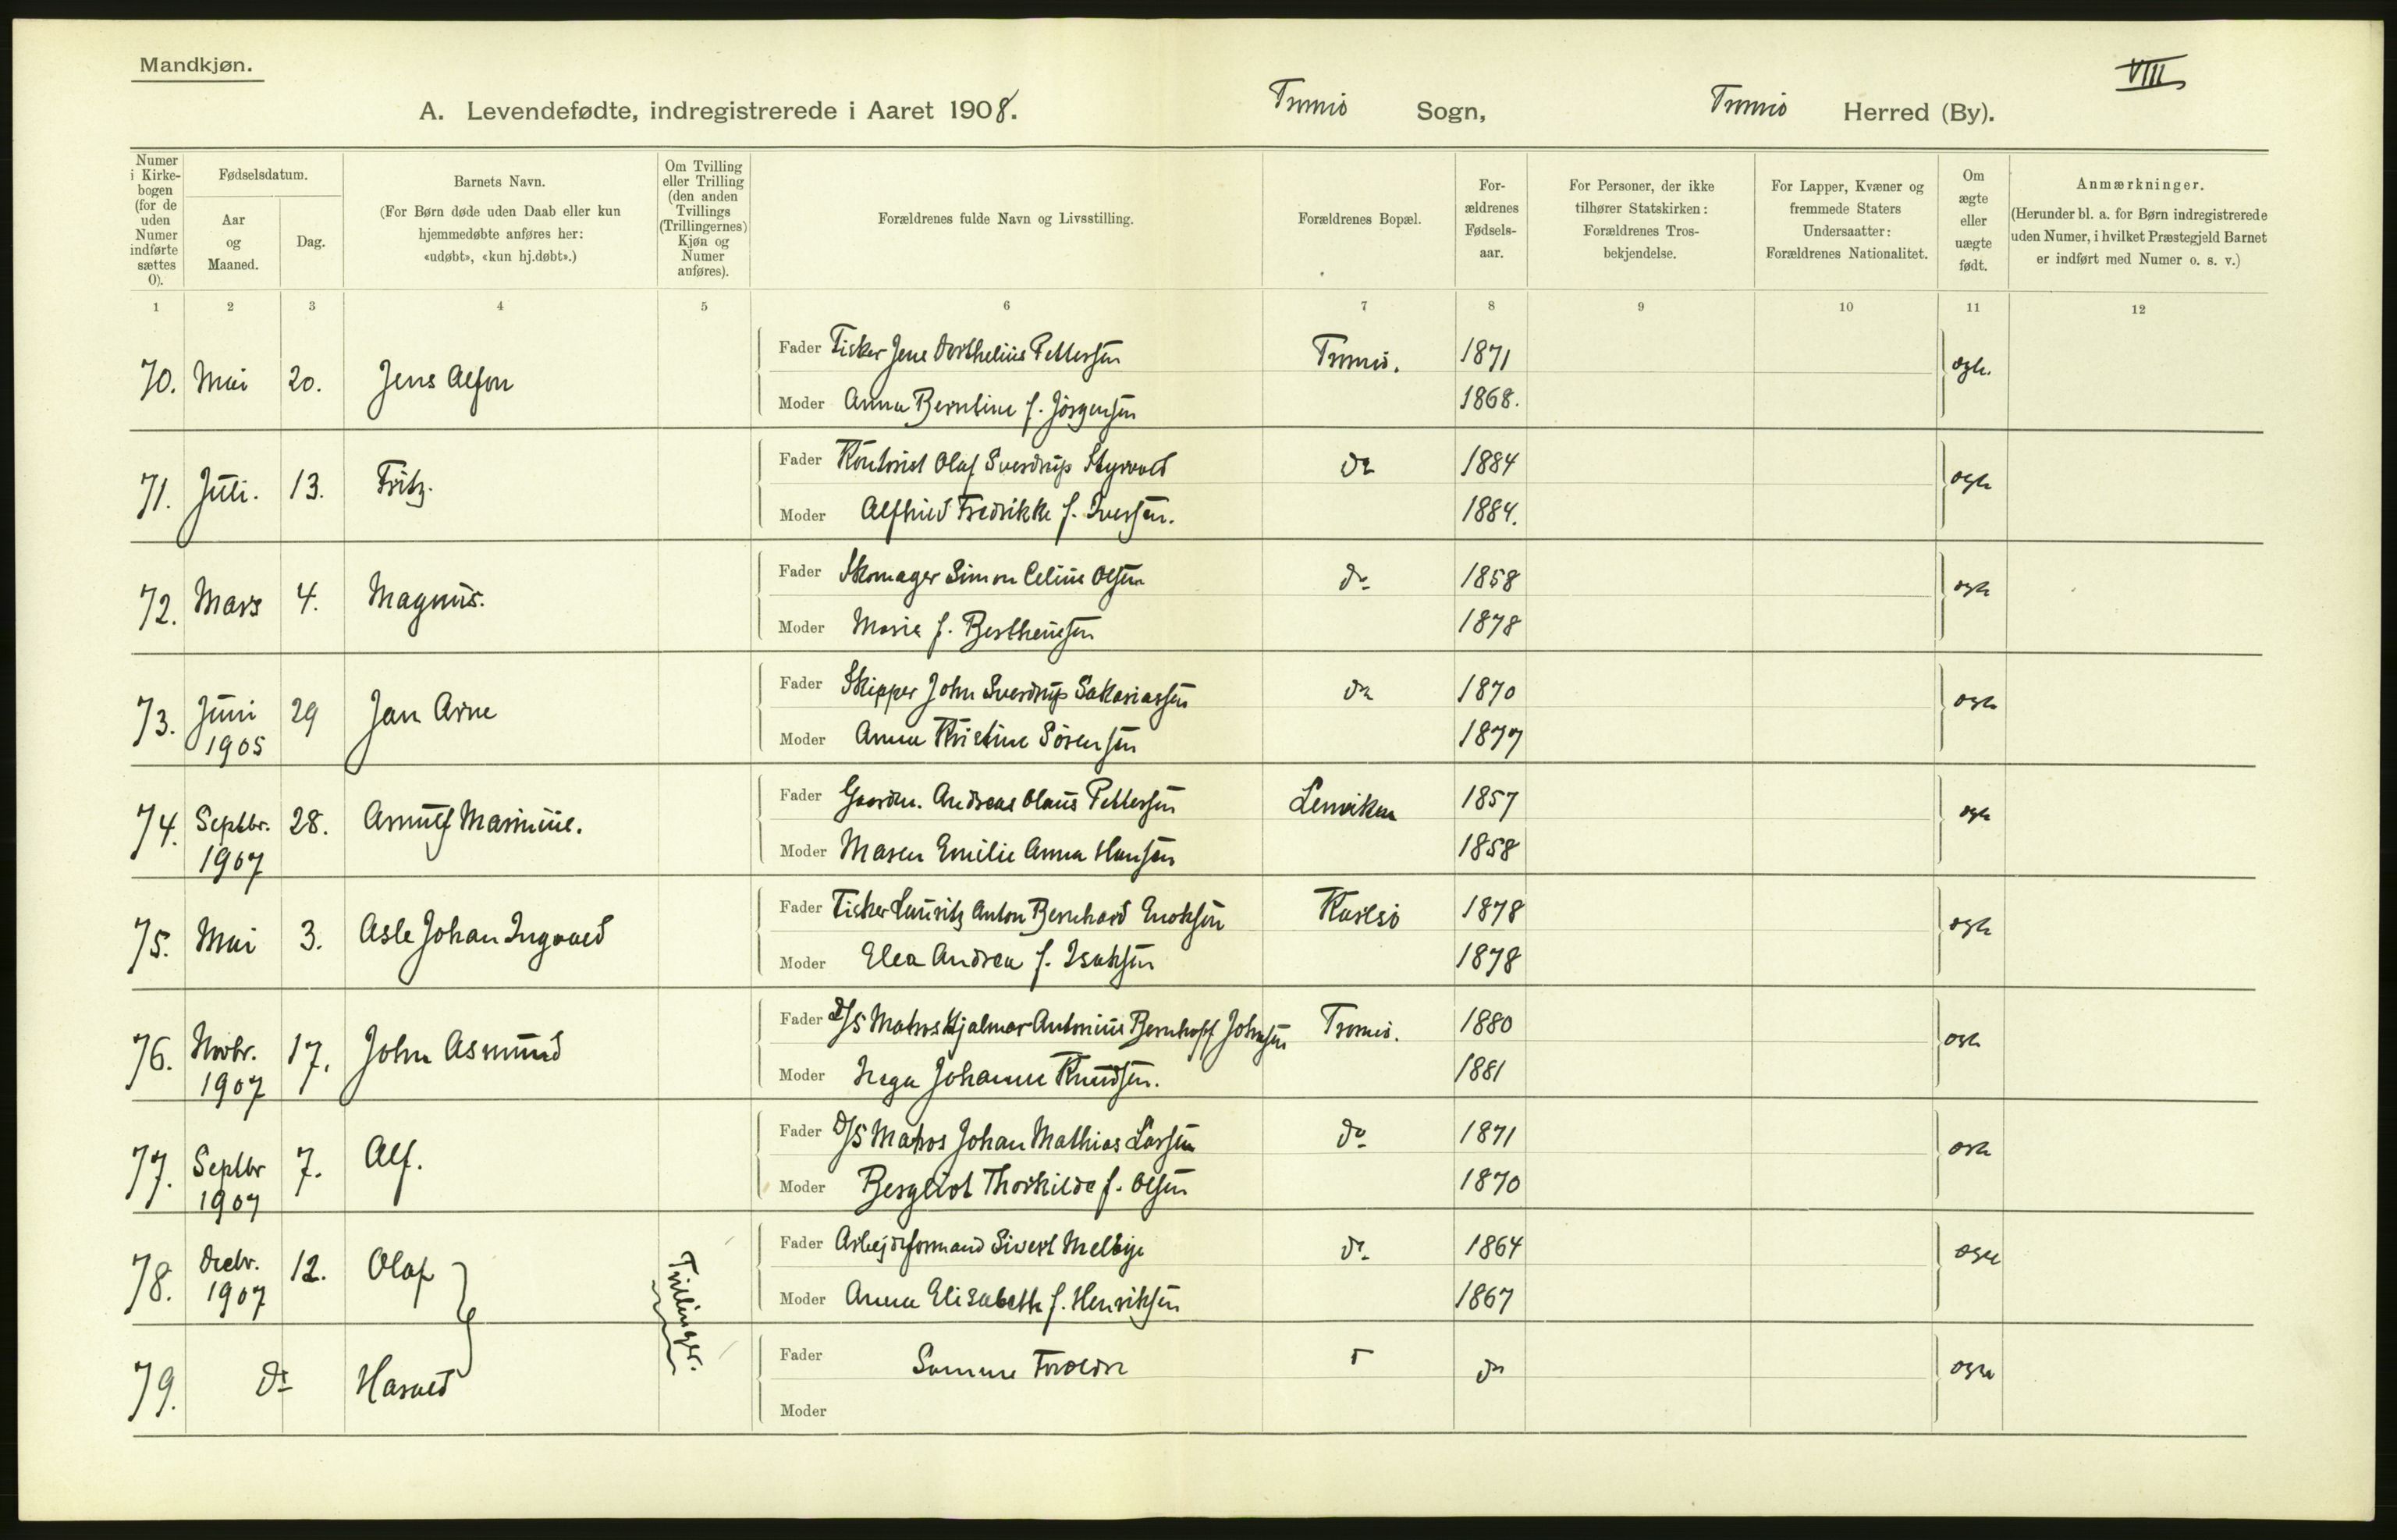 Mandkjøn.
VIII
A. Levendefødte, indregistrerede i Aaret 1908. Tromsø Sogn, Tromsø Herred (By).
Numer i Kirkebogen (for de uden Numer indførte sættes 0).
Fødselsdatum.
Aar og Maaned.
Dag.
Barnets Navn.
(For Børn døde uden Daab eller kun hjemmedøbte anføres her: «udøbt», «kun hj.døbt».)
Om Tvilling eller Trilling (den anden Tvillings (Trillingernes) Kjøn og Numer anføres).
Forældrenes fulde Navn og Livsstilling.
Forældrenes Bopæl.
Forældrenes Fødselsaar.
For Personer, der ikke tilhører Statskirken: Forældrenes Trosbekjendelse.
For Lapper, Kvæner og fremmede Staters Undersaatter: Forældrenes Nationalitet.
Om ægte eller uægte født.
Anmærkninger.
(Herunder bl. a. for Børn indregistrerede uden Numer, i hvilket Præstegjeld Barnet er indført med Numer o. s. v.)
1 2 3 4 5 6 7 8 9 10 11 12
70. Mai 20. Jens Alfon
Fader Fisker Jens Dorthelius Pettersen Tromsø. 1871 ægte.
Moder Anna Berntine f. Jörgensen 1868.
71. Juli. 13. Fritz.
Fader Kontorist Olaf Sverdrup Styrvold do 1884 ægte
Moder Alfhild Fredrikke f. Iversen. 1884.
72. Mars 4. Magnus.
Fader Skomager Simon Celius Olsen do 1858 ægte
Moder Marie f. Bertheussen 1878
73. Juni 1905 29 Jan Arne
Fader Skipper John Sverdrup Sakariassen do 1870 ægte
Moder Anna Kristine Sörensen 1877
74. Septbr. 1907 28. Arnulf Marinius.
Fader Gaardm. Andreas Olaus Pettersen Lenviken 1857 ægte
Moder Maren Emilie Anna Hansen 1858
75. Mai 3. Asle Johan Ingvald
Fader Fisker Lauritz Anton Bernhard Enoksen Karlsö 1878 ægte
Moder Elea Andrea f. Isaksen 1878
76. Novbr. 1907 17. John Asmund
Fader D/S Matros Hjalmar Antonius Bernhoff Johnsen Tromsø. 1880 ægte
Moder Inga Johanne Knudsen. 1881
77. Septbr 1907 7. Alf.
Fader D/S Matros Johan Mathias Larsen do 1871 ægte
Moder Bergliot Thorhilde f. Olsen 1870
78. Decbr. 1907 12. Olaf Tvillinger.
Fader Arbejdsformand Sivert Melbye do 1864 ægte
Moder Anna Elisabeth f. Henriksen 1867
79. do Harald
Fader Samme Forældre do ægte
Moder